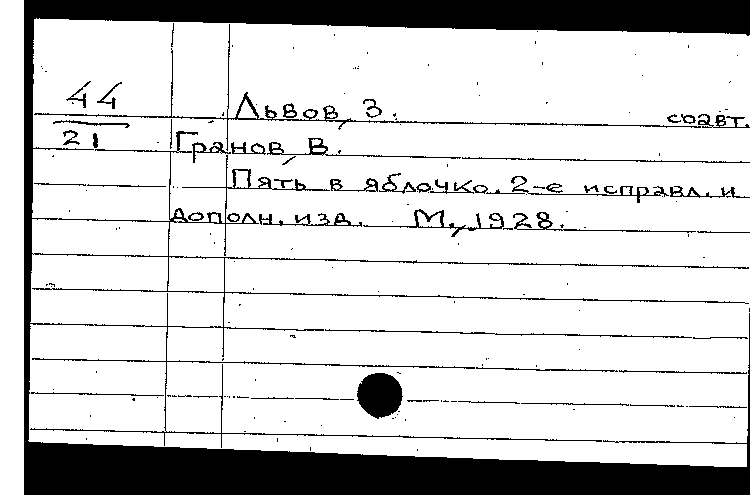 44
21
Львов, З. соавт.
Гранов, В.
Пять в яблочко. 2-е исправл. и
дополн. изд. М., 1928.